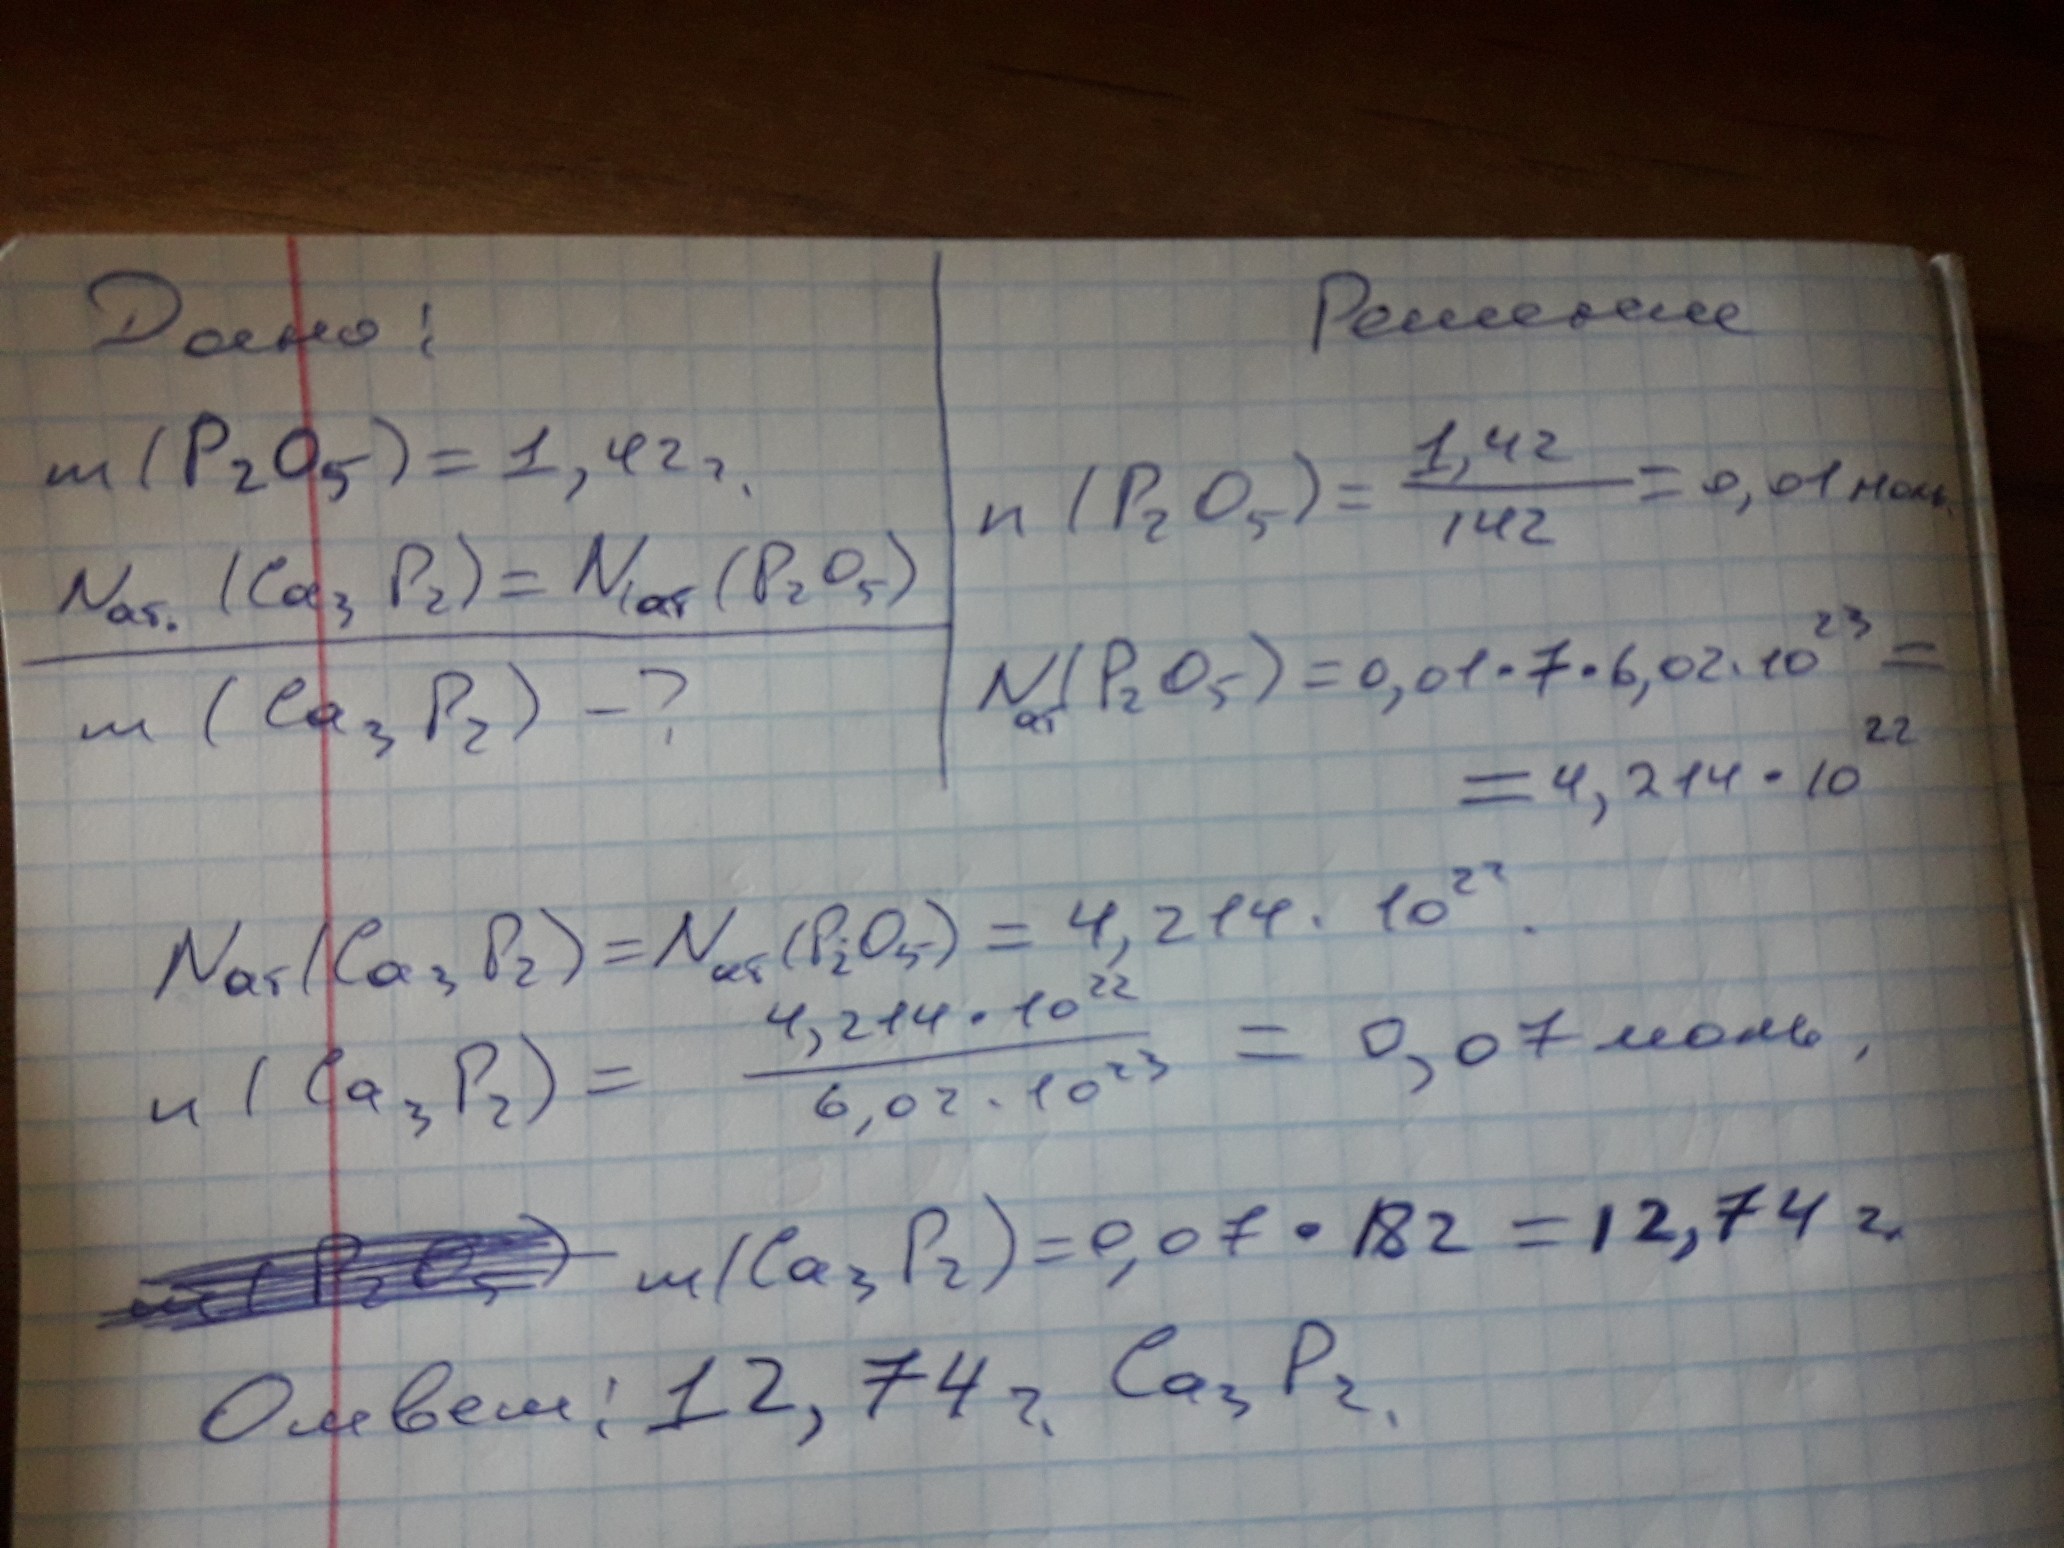 Дано:
m(P₂O₅) = 1,42 г.
Nат. (Ca₃P₂) = N₁ат (P₂O₅)
m (Ca₃P₂) - ?
Решение
n (P₂O₅) = 1,42 / 142 = 0,01 моль.
Nат(P₂O₅) = 0,01 · 7 · 6,02 · 10²³ =
= 4,214 · 10²²
Nат(Ca₃P₂) = Nат(P₂O₅) = 4,214 · 10²².
n (Ca₃P₂) = 4,214 · 10²² / 6,02 · 10²³ = 0,07 моль.
m(Ca₃P₂) = 0,07 · 182 = 12,74 г.
Ответ: 12,74 г. Ca₃P₂.